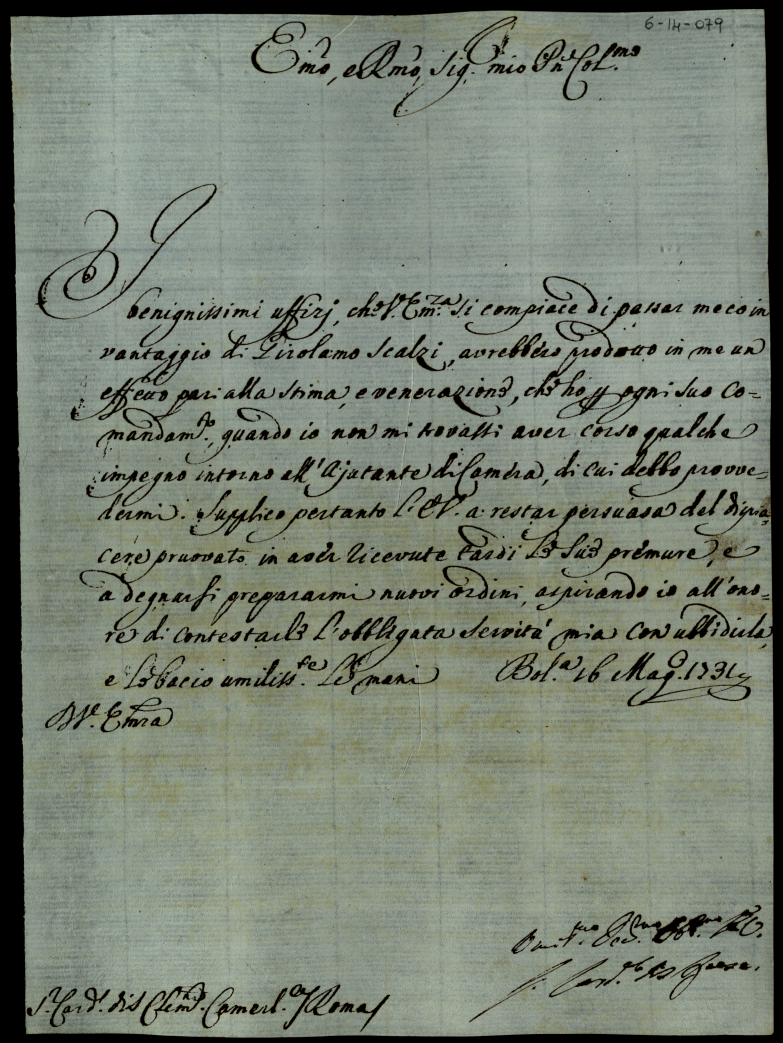 6-14-079
Emo, e Rmo Sig. mio Pne Col.mo
I
benignissimi uffizj, che V. Em.za si compiace di passar meco in
vantaggio di Girolamo Scalzi, avrebbero prodotto in me un
effetto pari alla stima, e venerazione, che ho p ogni suo Co-
mandam.to, quando io non mi trovassi aver corso qualche
impegno intorno all'Ajutante di Camera, di cui debbo provve-
dermi. Supplico pertanto l'E.V. a restar persuasa del dispia-
cere pruovato in aver ricevute tardi le sue premure, e
a degnarsi prepararmi nuovi ordini, aspirando io all'ono-
re di contestarle l'obbligata servitù mia con ubbidirla,
e le bacio umiliss.te le mani Bol.a 16 Mag.o 1731
D V. Emza
Sr. Card.l di S. Clem.te Camerl.o Roma